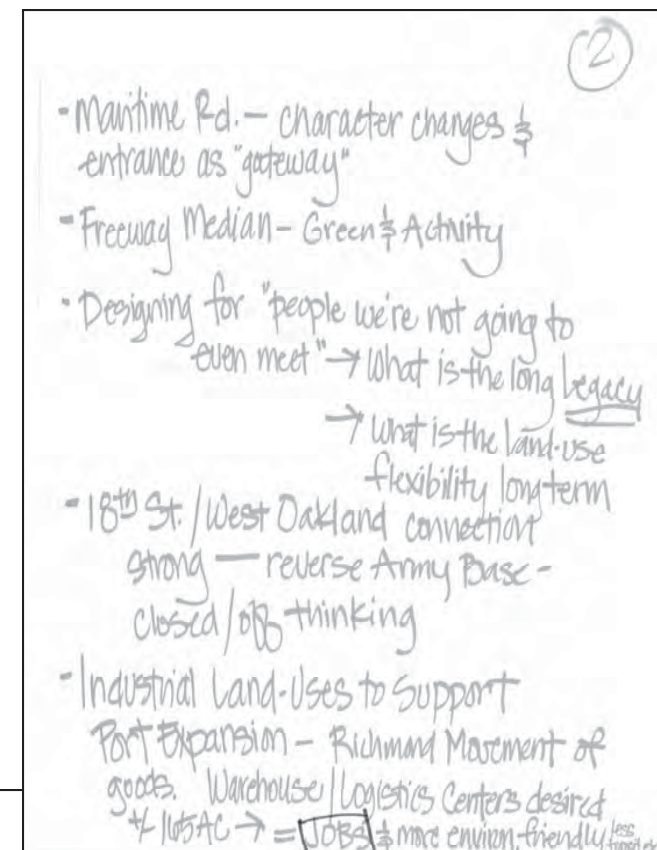 2
- Maritime Rd. — character changes &
entrance as "gateway"
- Freeway Median — Green & Activity
- Designing for "people we're not going to
even meet" → What is the long Legacy
→ What is the land-use
flexibility long term
- 18th St. / West Oakland connection
strong — reverse Army Base -
closed / off thinking
- Industrial Land-Uses to Support
Port Expansion — Richmond Movement of
goods. Warehouse / Logistics Centers desired
+/- 165 AC → = JOBS & more environ. friendly less